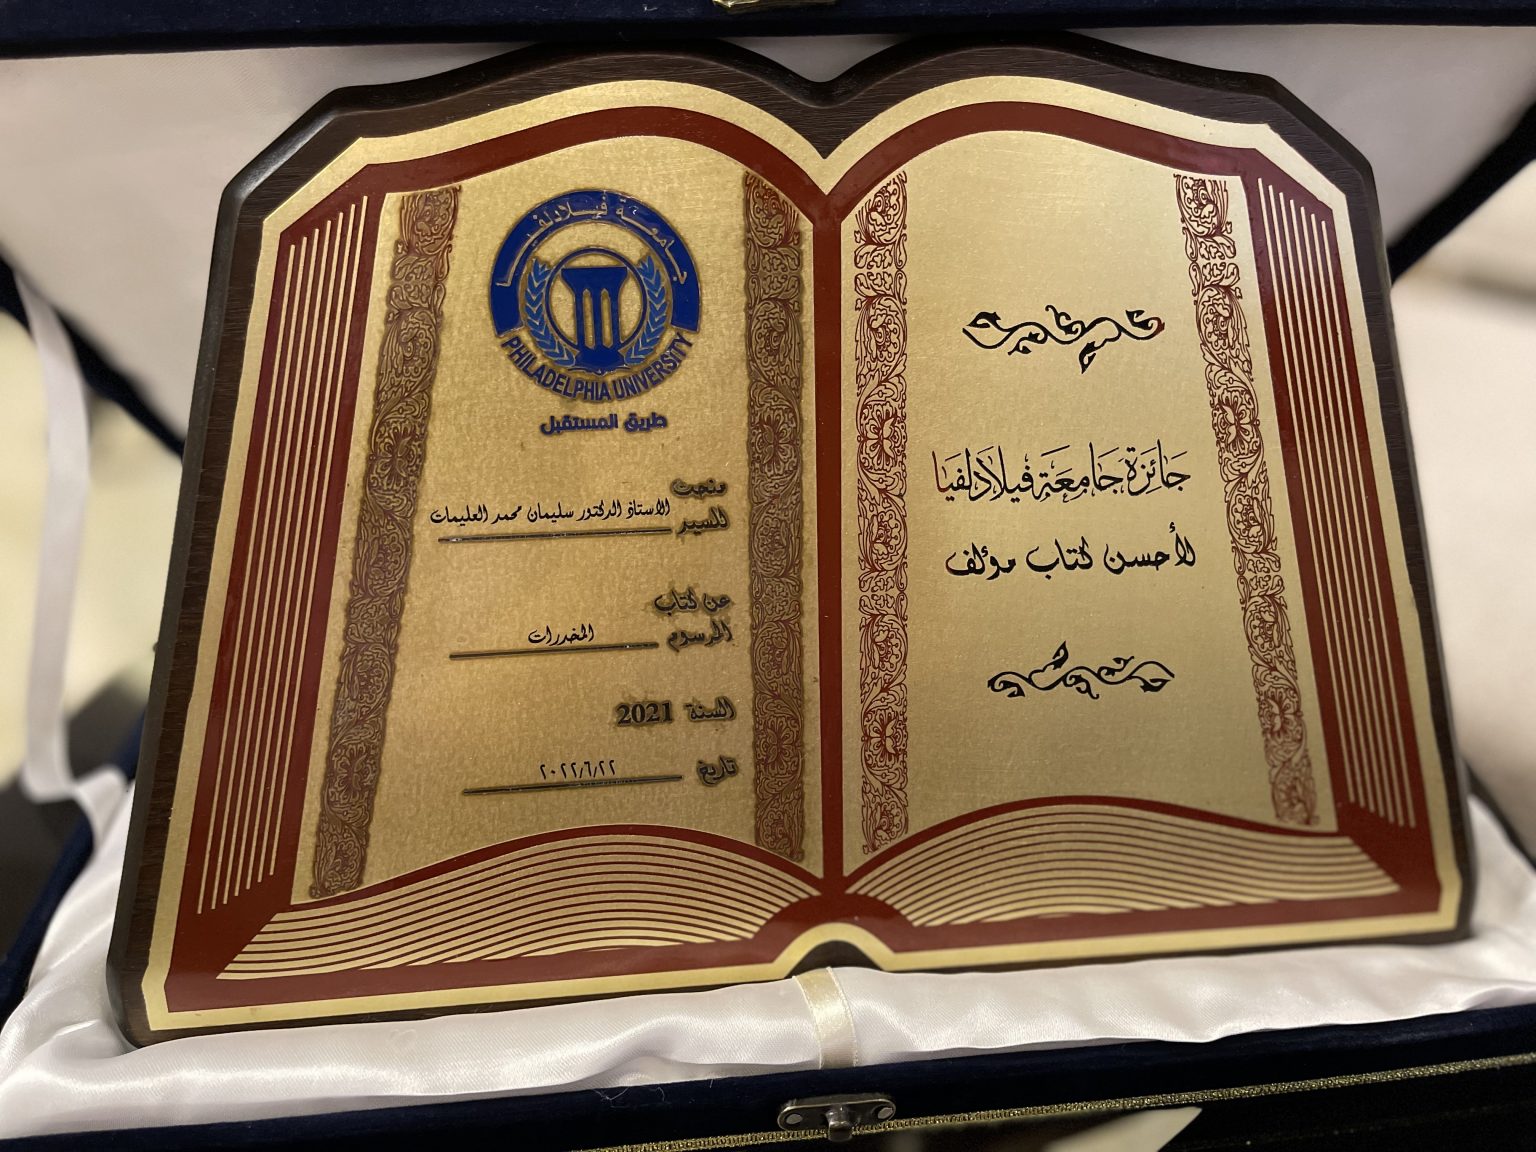 جَائِزَة جَامِعَة فيلادلفيا
لأحسن كتاب مؤلف
جامعة فيلادلفيا
PHILADELPHIA UNIVERSITY
طريق المستقبل
منحت
للسيد الاستاذ الدكتور سليمان محمد العليمات
عن كتاب
المرسوم المخدرات
السنة 2021
تاريخ ٢٠٢٢/٦/٢٢